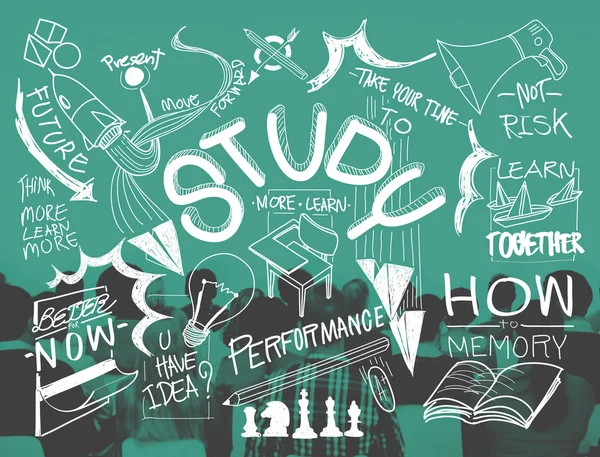 Present
MOVE
FORWARD
FUTURE
THINK
MORE
LEARN
MORE
STUDY
·MORE·LEARN·
—TAKE YOUR TIME—
TO
—NOT—
RISK
LEARN
TOGETHER
BETTER
FOR
-NOW-
U
HAVE
IDEA?
PERFORMANCE
HOW
to
MEMORY